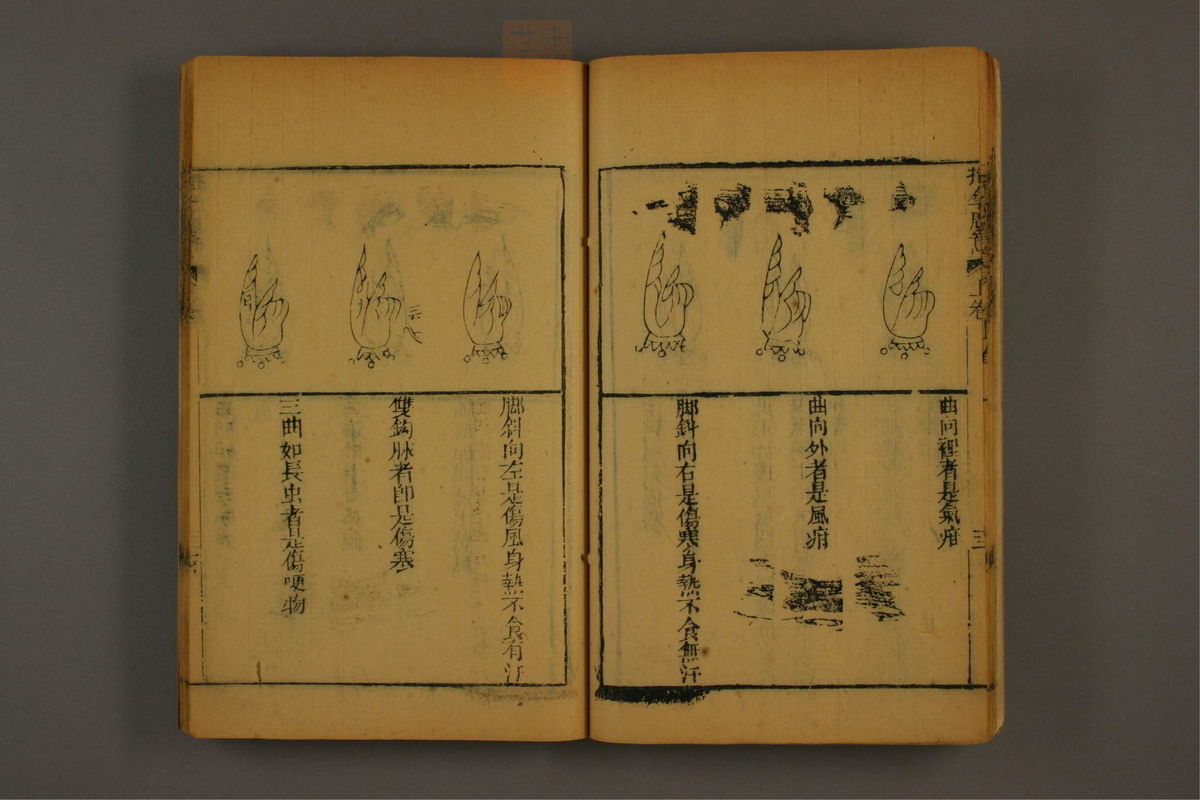 曲向裡者是氣疳
曲向外者是風疳
脚斜向右是傷寒身熱不食無汗
脚斜向左是傷風身熱不食有汗
雙鈎脉者即是傷寒
三曲如長虫者是傷哽物
三